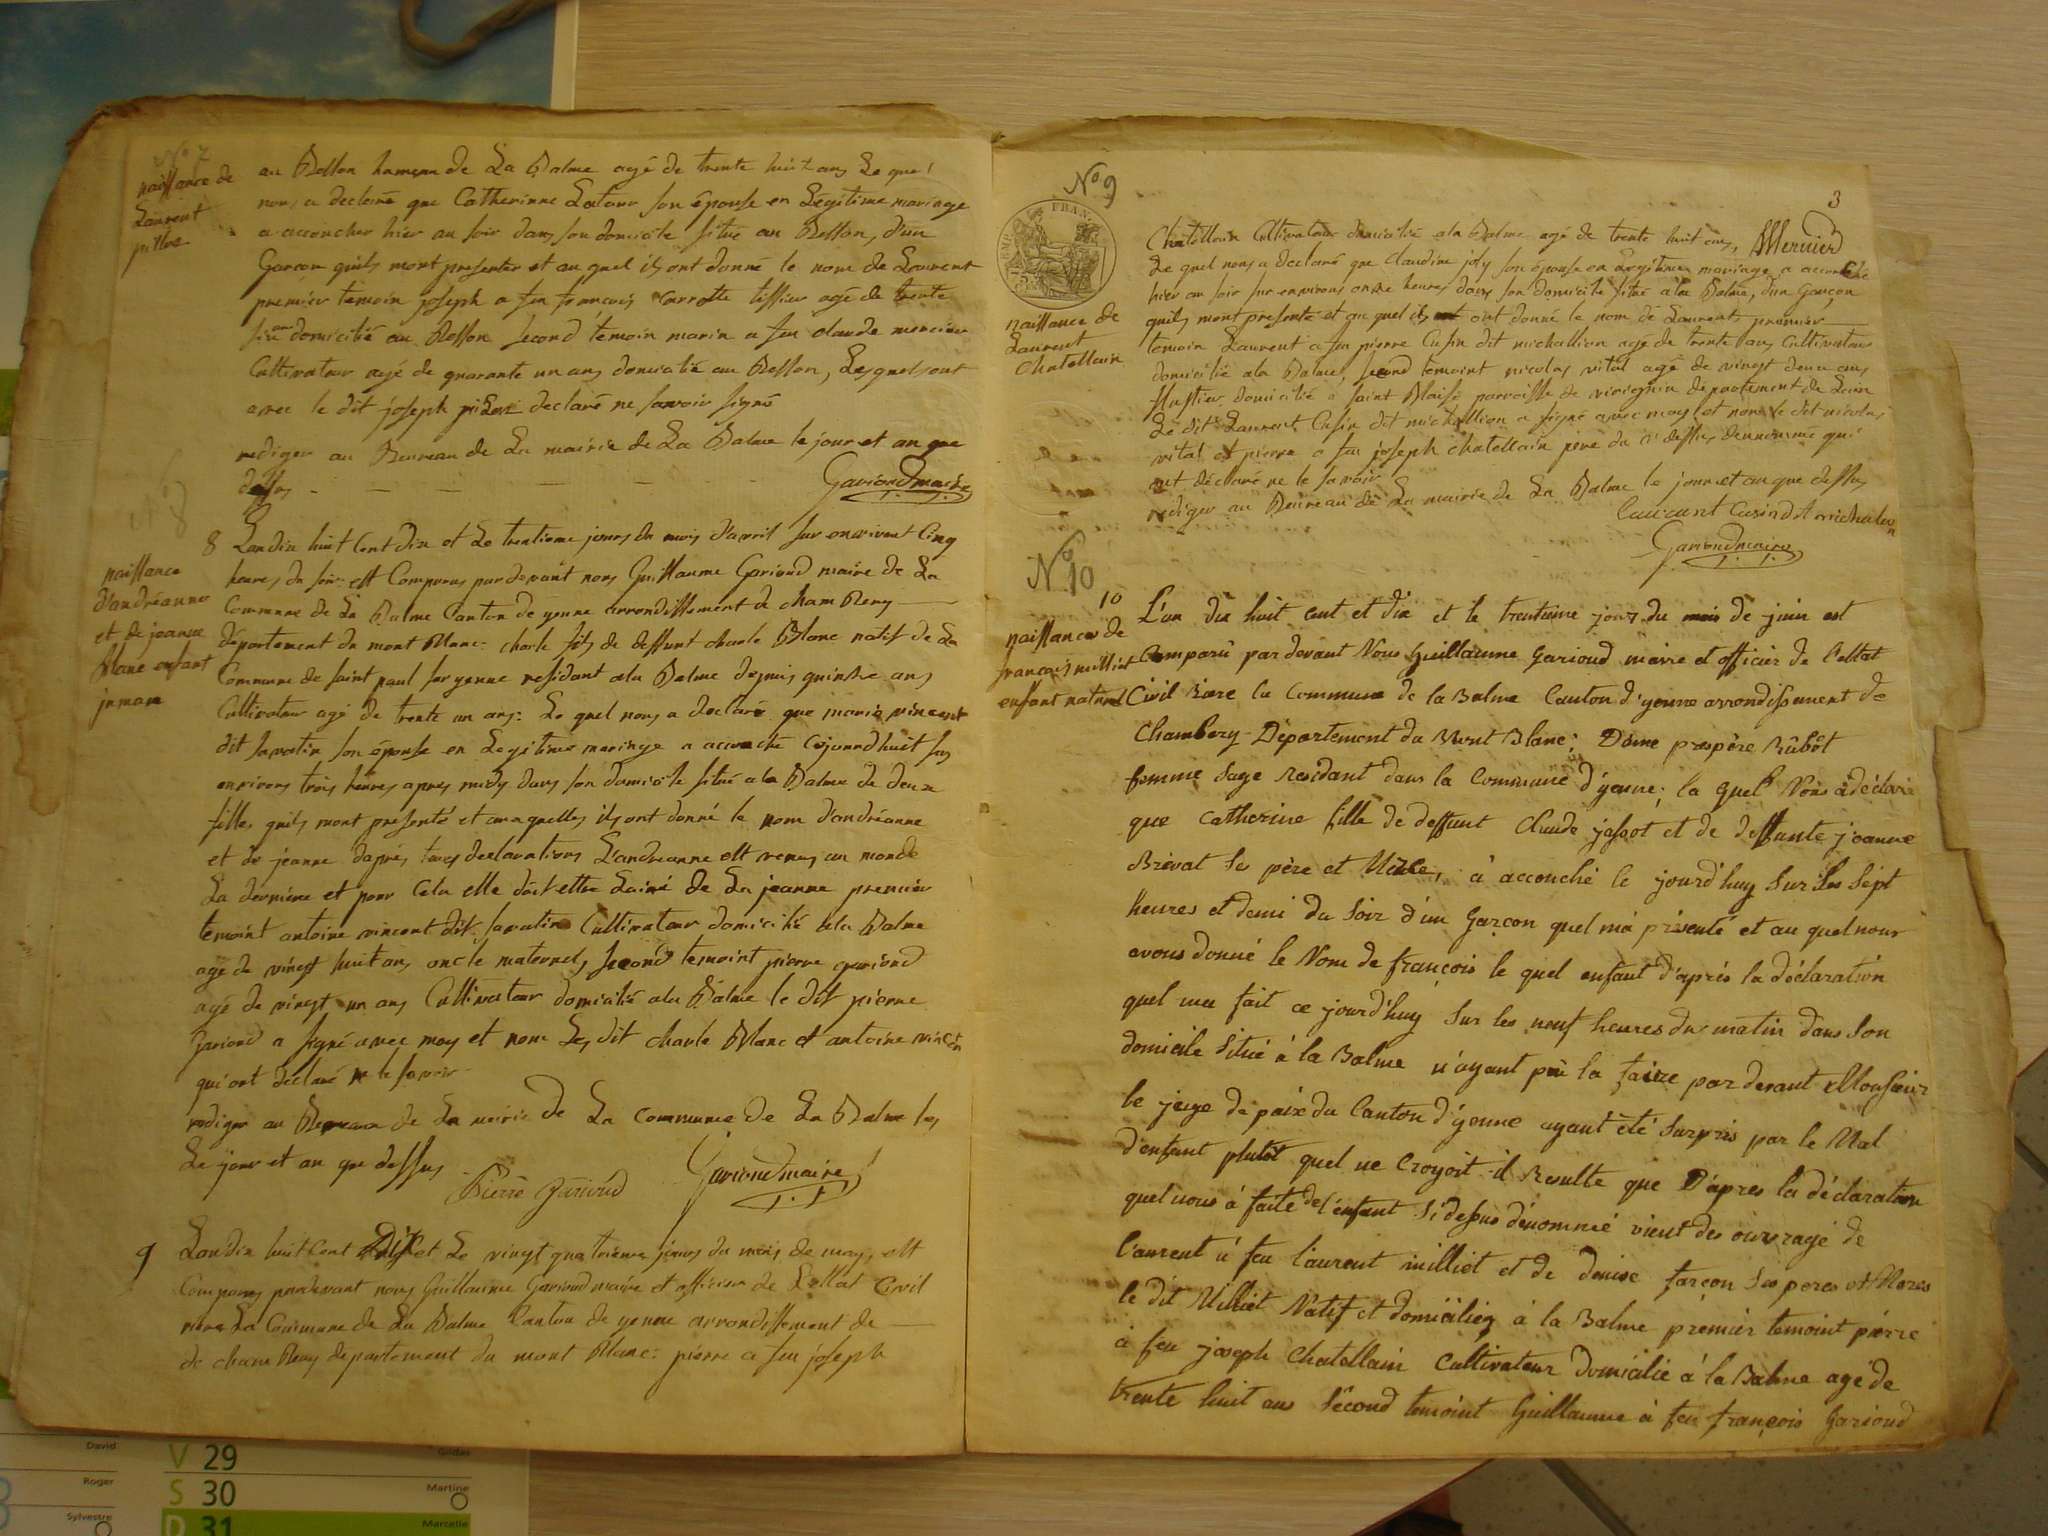 No 7
naissance de
Laurent
pillos
au Resson hameau de La Balme agé de trente huit ans Le quel
nous a declaré que Catherinne Latour son épouse en Legitime mariage
a accoucher hier au soir dans son domicile situé au Resson, d'un
Garçon quils mont presenter et au quel ils ont donné le nom de Laurent
premier temoin joseph a feu françois Carrotte tissier agé de trente
six ans domicilié au Resson second temoin marin a feu claude mercier
Cultivateur agé de quarante un ans domicilié au Resson, Lesquels ont
avec le dit joseph declaré ne savoir signé
rediger au Bureau de La mairie de La Balme le jour et an que
dessus
Gariod maire
No 8
naissance
d'andréanne
et de jeanne
Blanc enfant
jumaux
8 Lan dix huit Cent dix et Le trentieme jours du mois d'avril sur environt Cinq
heures du soir est Comparus pardevant nous Guillaume Gariod maire de La
Commune de La Balme Canton de yenne arrondissement de chamBery
département du mont Blanc: charle fils de deffunt charle Blanc natif de La
Commune de saint paul sur yenne residant ala Balme depuis quinze ans
Cultivateur agé de trente un ans: Le quel nous a declaré que marie vincent
dit savatin son épouse en Legitime mariage a accouché cejourdhuit sur
environs trois heures apres midy dans son domicile situé ala Balme de deux
filles quils mont presenté et auxquelles ils ont donné le nom d'andréanne
et de jeanne dapres leurs declarations L'andréanne est venus au monde
La derniere et pour Cela elle doit ettre Lainé de La jeanne premier
temoint antoine vincent dit savatin Cultivateur domicilié ala Balme
agé de vingt huit ans oncle maternel, second temoint pierre gariod
agé de vingt un ans Cultivateur domicilié ala Balme le dit pierre
Gariod a signé avec moy et non Les dit charle Blanc et antoine vincent
qui ont declaré ne le savoir
rediger au Bureaux de La mairie de La Commune de La Balme les
Le jour et an que dessus
Pierre Gariod Gariod maire
9 Lan dix huit Cent Dix et Le vingt quatrieme jours du mois de may, est
Comparus pardevant nous Guillaume Gariod maire et officier de L'ettat Civil
riere La Commune de La Balme Canton de yenne arrondissement de
de chamBery departement du mont Blanc: pierre a feu joseph
3
No 9
FRANC
naissance de
Laurent
Chatellain
Chatellain Cultivateur domicilié ala Balme agé de trente huit ans, Mernier
Le quel nous a declaré que claudine joly son épouse en Legitime mariage a accouché
hier au soir sur environs onze heures dans son domicile situé ala Balme, d'un Garçon
quils mont presenté et au quel ils ont donné le nom de Laurent, premier
temoin Laurent a feu pierre Cusin dit michallion agé de trente ans Cultivateur
domicilié ala Balme, second temoint nicolas vital agé de vingt deux ans
domicilié a saint Blaise paroisse de virieignin departement de Lain
Le dit Laurent Cusin dit michallion a signé avec moy et non le dit nicolas
vital et pierre a feu joseph chatellain pere du ci dessus dennommé qui
ont déclaré ne le savoir
rediger au Bureau de La mairie de La Balme le jour et an que dessus
Laurant Cusin dit michalion
Gariod maire
No 10
naissance de
françois milliet
enfant naturel
10 L'an dix huit cent et dix et le trentieme jour du mois de juin est
Comparu par devant Nous Guillaume Gariod maire et officier de l'ettat
Civil Riere la Commune de la Balme Canton d'yenne arrondissement de
Chambery Département du Mont Blanc; Dame prospère Rûbôt
femme sage residant dans la Commune d'yenne; la quel Nous à déclaré
que Catherine fille de deffunt claude jassot et de deffunte jeanne
Brevat ses père et Mère, à accouché le jourd'huy sur les sept
heures et demi du soir d'un Garçon quel m'à présenté et au quel nous
avons donné le Nom de françois le quel enfant d'après la déclaration
quel ma fait ce jourd'huy sur les neuf heures du matin dans son
domicile situé à la Balme n'ayant pû la faire par devant Monsieur
le juge de paix du Canton d'yenne ayant été surpris par le Mal
d'enfant plutôt quel ne Croyoit il Resulte que D'apres la déclaration
quel nous à faite de l'enfant si dessus dénommé vient des ouvrage de
laurent à feu laurent milliet et de denise farçon ses peres et Meres
le dit Milliet Natif et domicilier à la Balme premier temoint pierre
à feu joseph Chatellain Cultivateur domicilié à la Balme agé de
trente huit ans second temoint Guillaume à feu françois Gariod
David
Roger
Sylvestre
V 29
S 30
D 31
Gildas
Martine
Marcelle